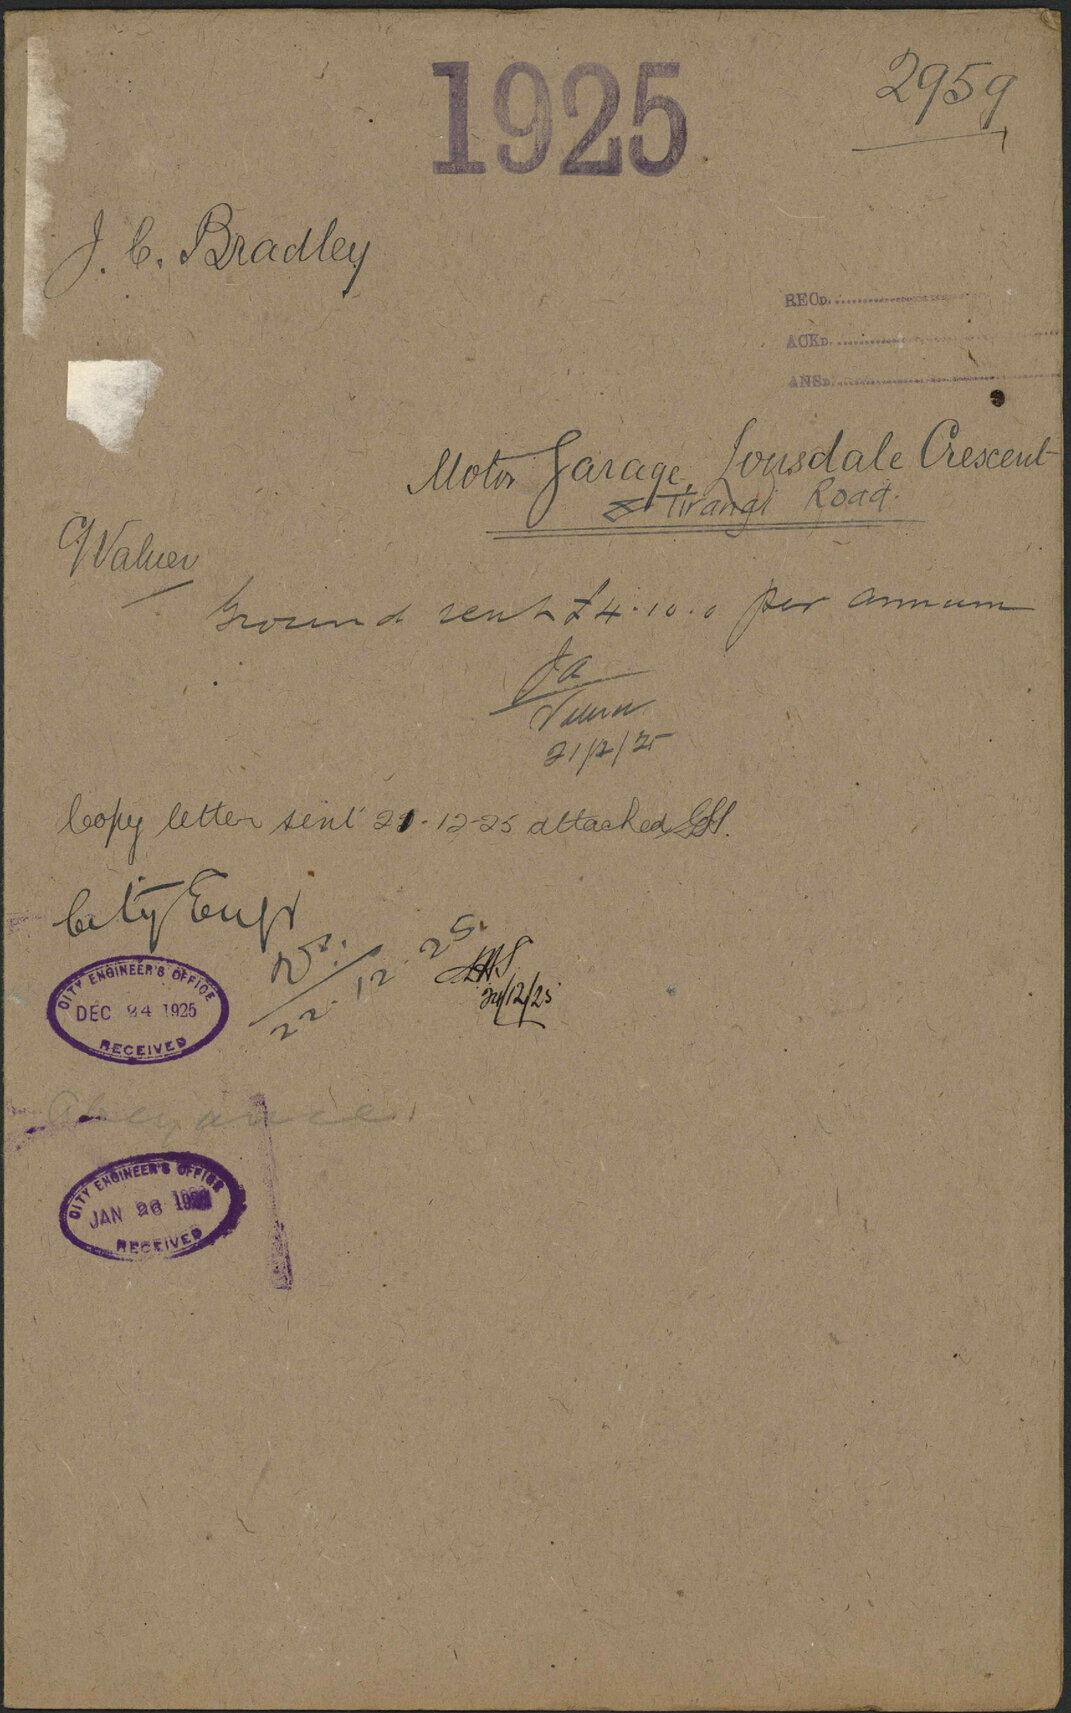 1925
2959
J. C. Bradley
RECD.
ACKD.
ANSD.
Motor Garage, Lonsdale Crescent
& Tirangi Road.
Valuer
Ground rent £4.10.0 per annum
JA
Valuer
21/12/25
Copy letter sent 21-12-25 attached
City Engr
22.12.25.
24/12/25
CITY ENGINEER'S OFFICE
DEC 24 1925
RECEIVED
Abeyance
CITY ENGINEER'S OFFICE
JAN 26
RECEIVED